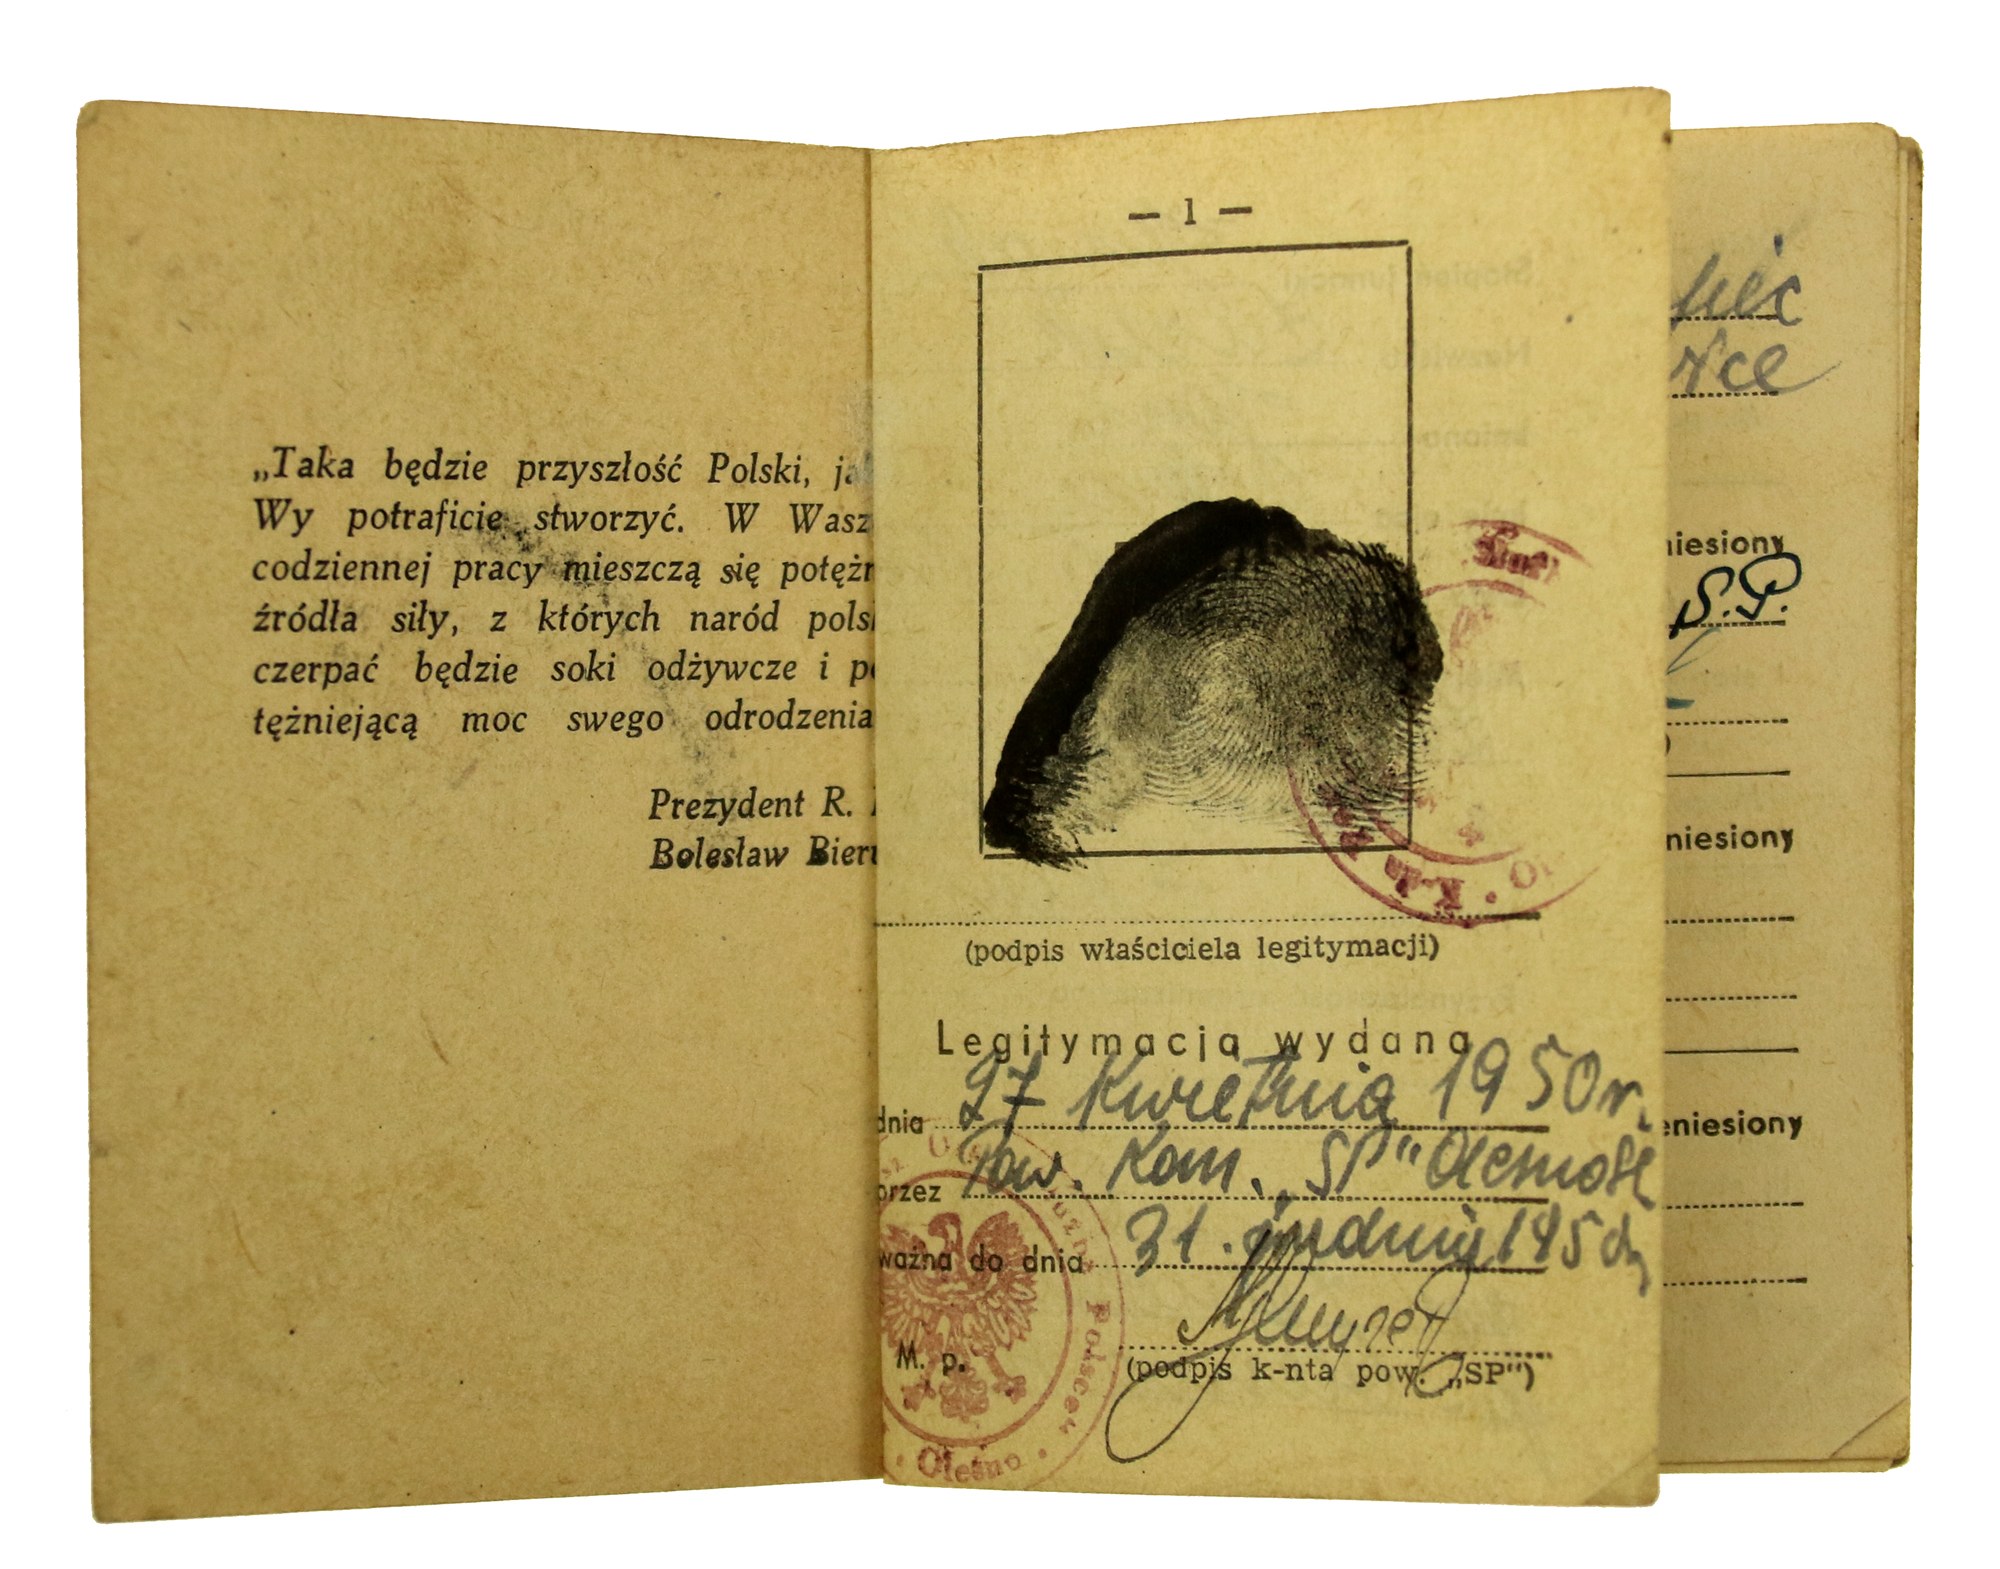 „Taka będzie przyszłość Polski,
Wy potraficie stworzyć. W Wasz
codziennej pracy mieszczą się potęż
źródła siły, z których naród pols
czerpać będzie soki odżywcze i p
tężniejącą moc swego odrodzenia
Prezydent R.
Bolesław Bieru
— 1 —
(podpis właściciela legitymacji)
Legitymacja wydana
dnia 27 Kwietnia 1950 r.
przez Pow. Kom. „SP" Olesno
ważna do dnia 31. grudnia 195
M. p.
(podpis k-nta pow. „SP")
Polsce"
Olesno
K-da
niesiony
S.P.
niesiony
eniesiony